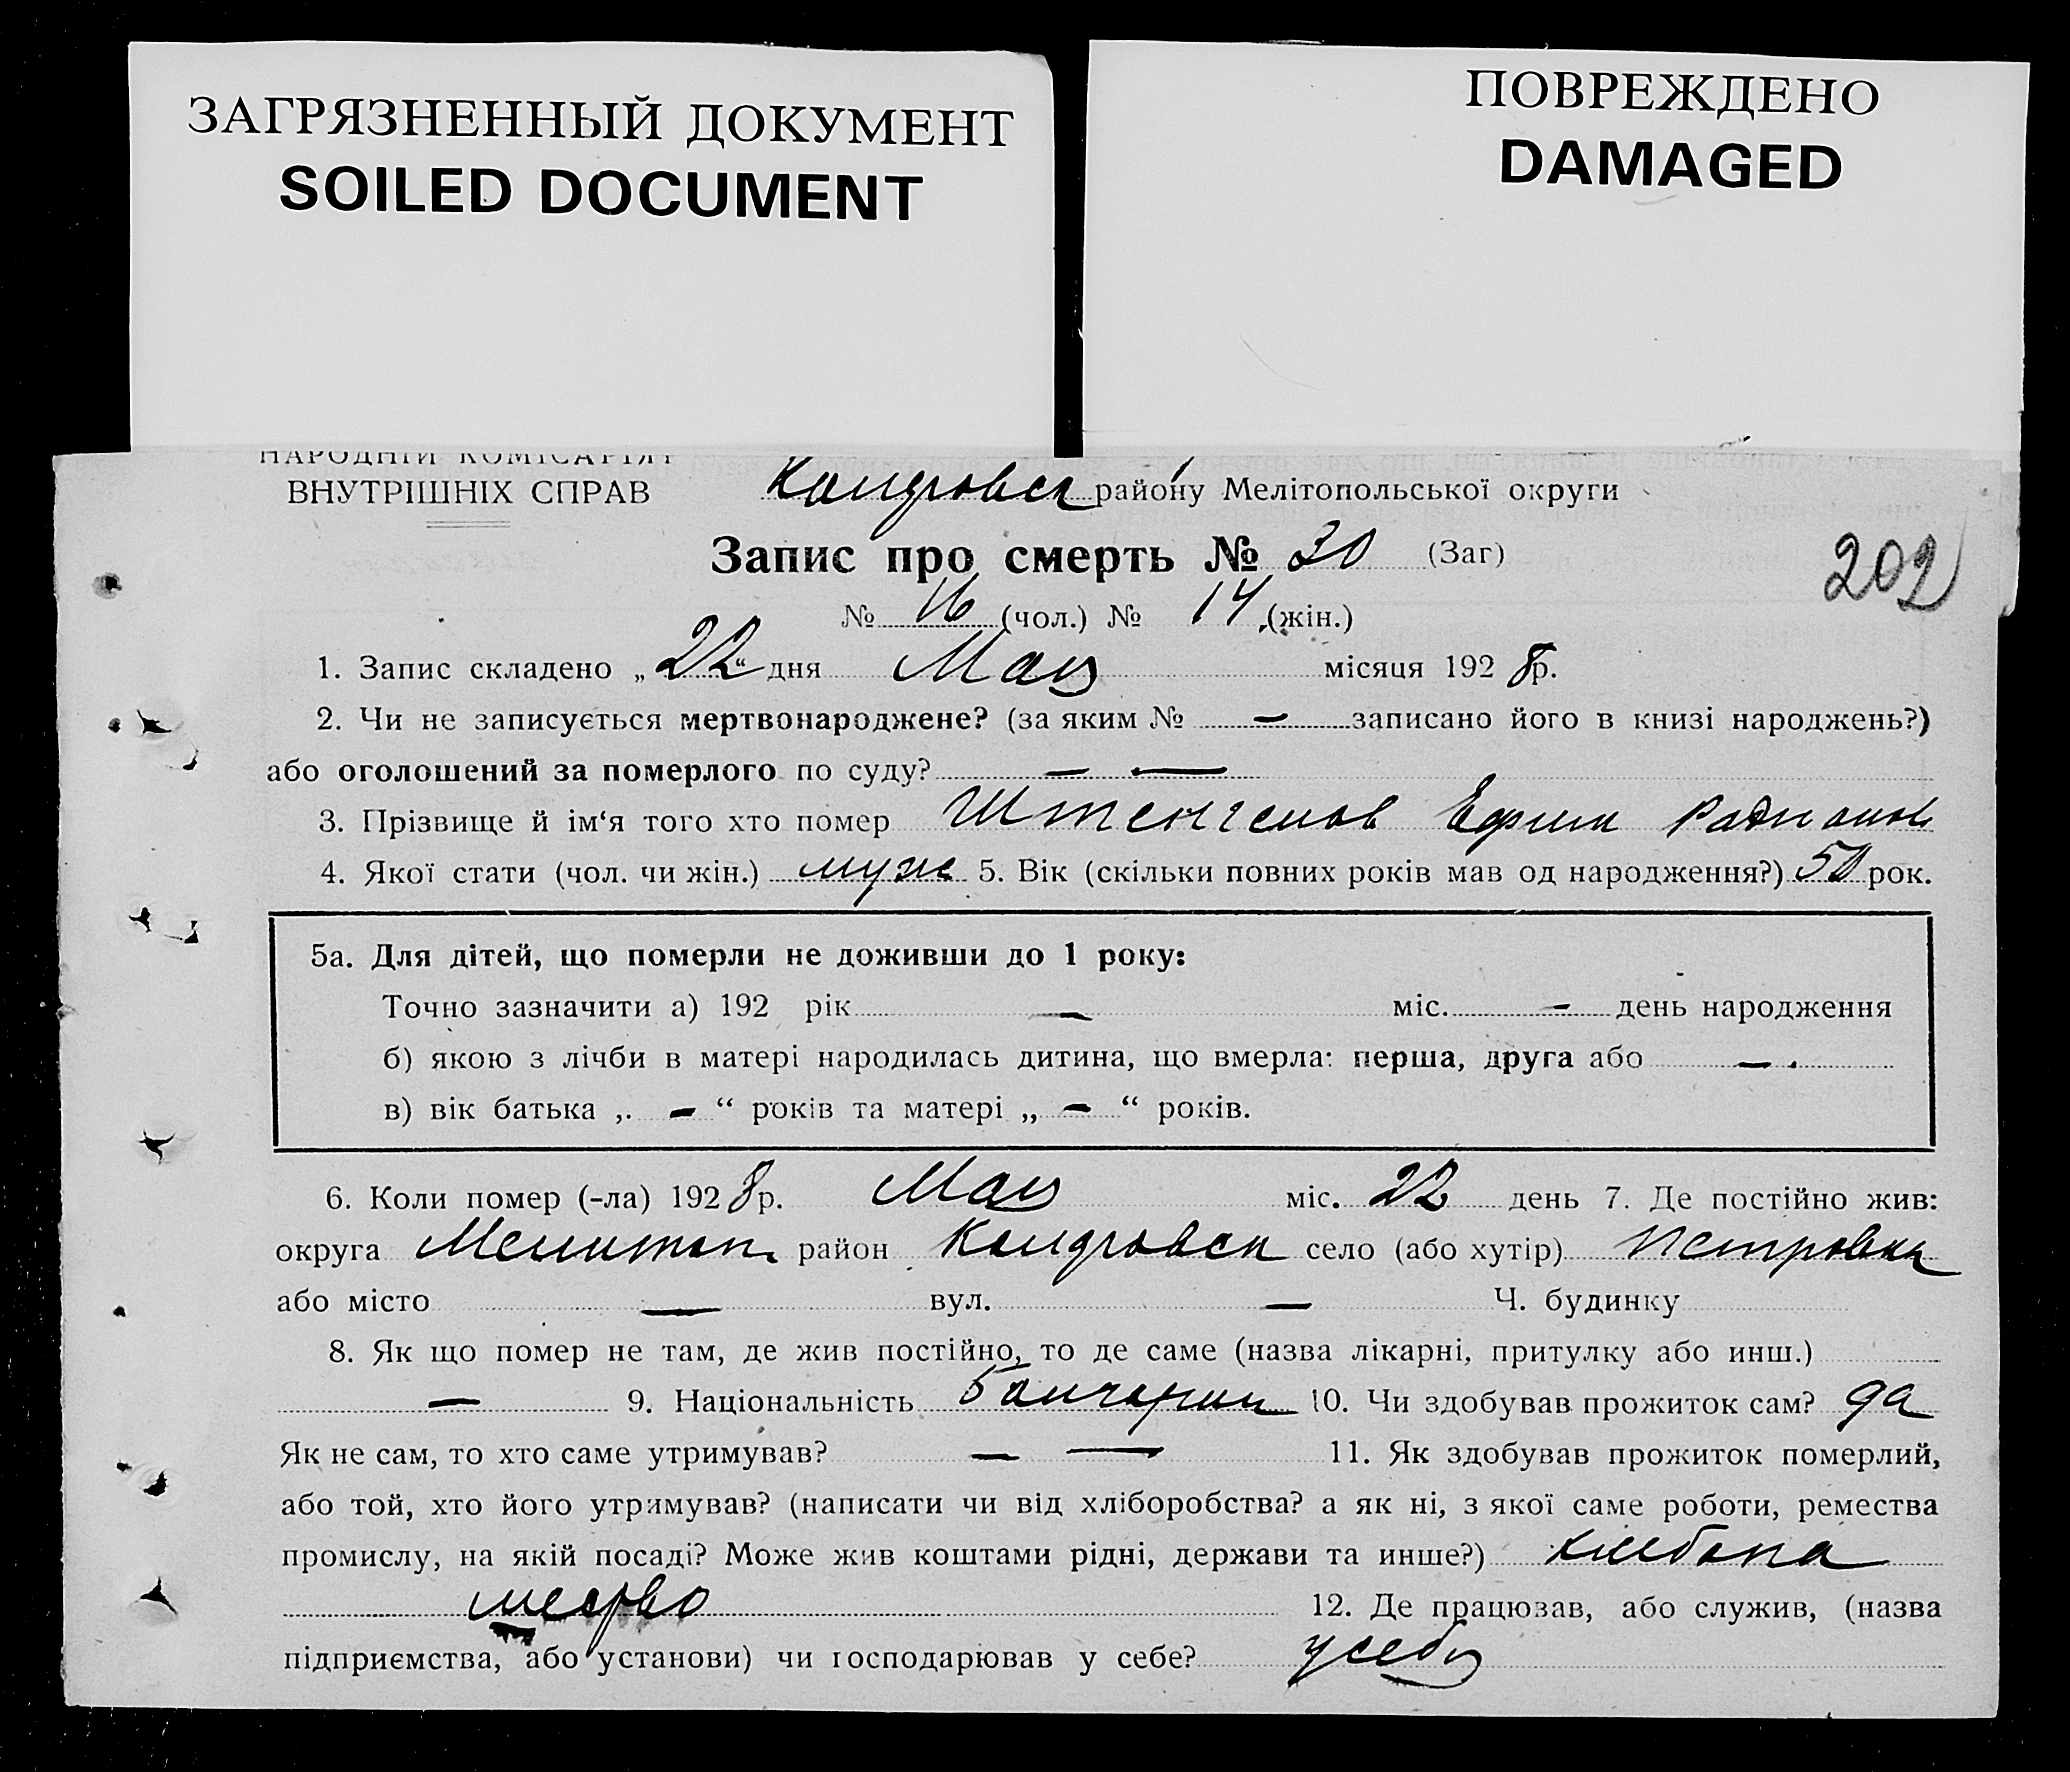 ЗАГРЯЗНЕННЫЙ ДОКУМЕНТ
SOILED DOCUMENT
ПОВРЕЖДЕНО
DAMAGED
НАРОДНІЙ КОМІСАРІЯТ
ВНУТРІШНІХ СПРАВ
району Мелітопольської округи
Запис про смерть № 30 (Заг)
202
№ 16 (чол.) № 14 (жін.)
1. Запис складено „22“ дня Мая місяця 1928р.
2. Чи не записується мертвонароджене? (за яким № — записано його в книзі народжень?)
або оголошений за померлого по суду? — —
3. Прізвище й ім‘я того хто помер Штенгелов Ефим Радионов
4. Якої стати (чол. чи жін.) муж 5. Вік (скільки повних років мав од народження?) 50 рок.
5а. Для дітей, що померли не доживши до 1 року:
Точно зазначити а) 192 рік — міс. — день народження
б) якою з лічби в матері народилась дитина, що вмерла: перша, друга або —
в) вік батька „ — “ років та матері „ — “ років.
6. Коли помер (-ла) 1928р. Мая міс. 22 день 7. Де постійно жив:
округа Мелитоп. район село (або хутір) Петровка
або місто — вул. — Ч. будинку
8. Як що помер не там, де жив постійно, то де саме (назва лікарні, притулку або инш.)
— 9. Національність Болгарин 10. Чи здобував прожиток сам? да
Як не сам, то хто саме утримував? — — 11. Як здобував прожиток померлий,
або той, хто його утримував? (написати чи від хліборобства? а як ні, з якої саме роботи, ремества
промислу, на якій посаді? Може жив коштами рідні, держави та инше?) хлебопа
шество 12. Де працював, або служив, (назва
підприємства, або установи) чи господарював у себе? у себя